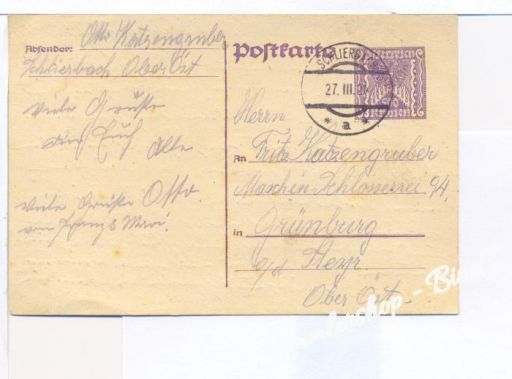 Absender: Otto Katzengruber
Schlierbach Ober Öst
Viele Grüße
an Euch
Alle
Viele Grüße Otto.
von Franz &
Postkarte
SCHLIERBACH
27. III. 2
* a *
Herrn
An Fritz Katzengruber
Maschin Schlosserei
in Grünburg
a/d Steyr
Ober Öst.